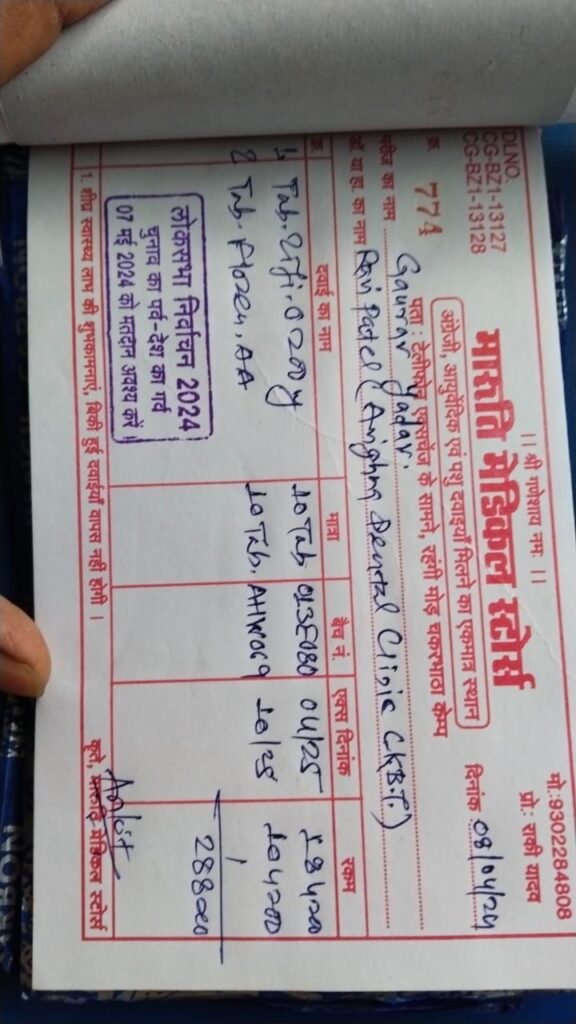 ।। श्री गणेशाय नमः ।।
DLNO.
CG-BZ1-13127
CG-BZ1-13128
मो:9302284808
प्रो: राकी यादव
मारुति मेडिकल स्टोर्स
अंग्रेजी, आयुर्वेदिक एवं पशु दवाइयाँ मिलने का एकमात्र स्थान
पता : टेलीफोन एक्सचेंज के सामने, रहंगी मोड़ चकरभाठा केम्प
क्र. 774
दिनांक 08/04/24
मरीज का नाम Gaurav Yadav.
डॉ. या हा. का नाम Ravi Patel ( Dental Clinic CKBT.)
क्र. दवाई का नाम मात्रा बैच नं. एक्स दिनांक रकम
1. Tab. Zifi-O 200 10 Tab 04/25 184=00
2 Tab. AA 10 Tab. AHW069 10/25 104=00
288=00
लोकसभा निर्वाचन 2024
चुनाव का पर्व-देश का गर्व
07 मई 2024 को मतदान अवश्य करें ।
1. शीघ्र स्वास्थ्य लाभ की शुभकामनाएं, बिकी हुई दवाईयाँ वापस नही होगी ।
कृते, मारुति मेडिकल स्टोर्स